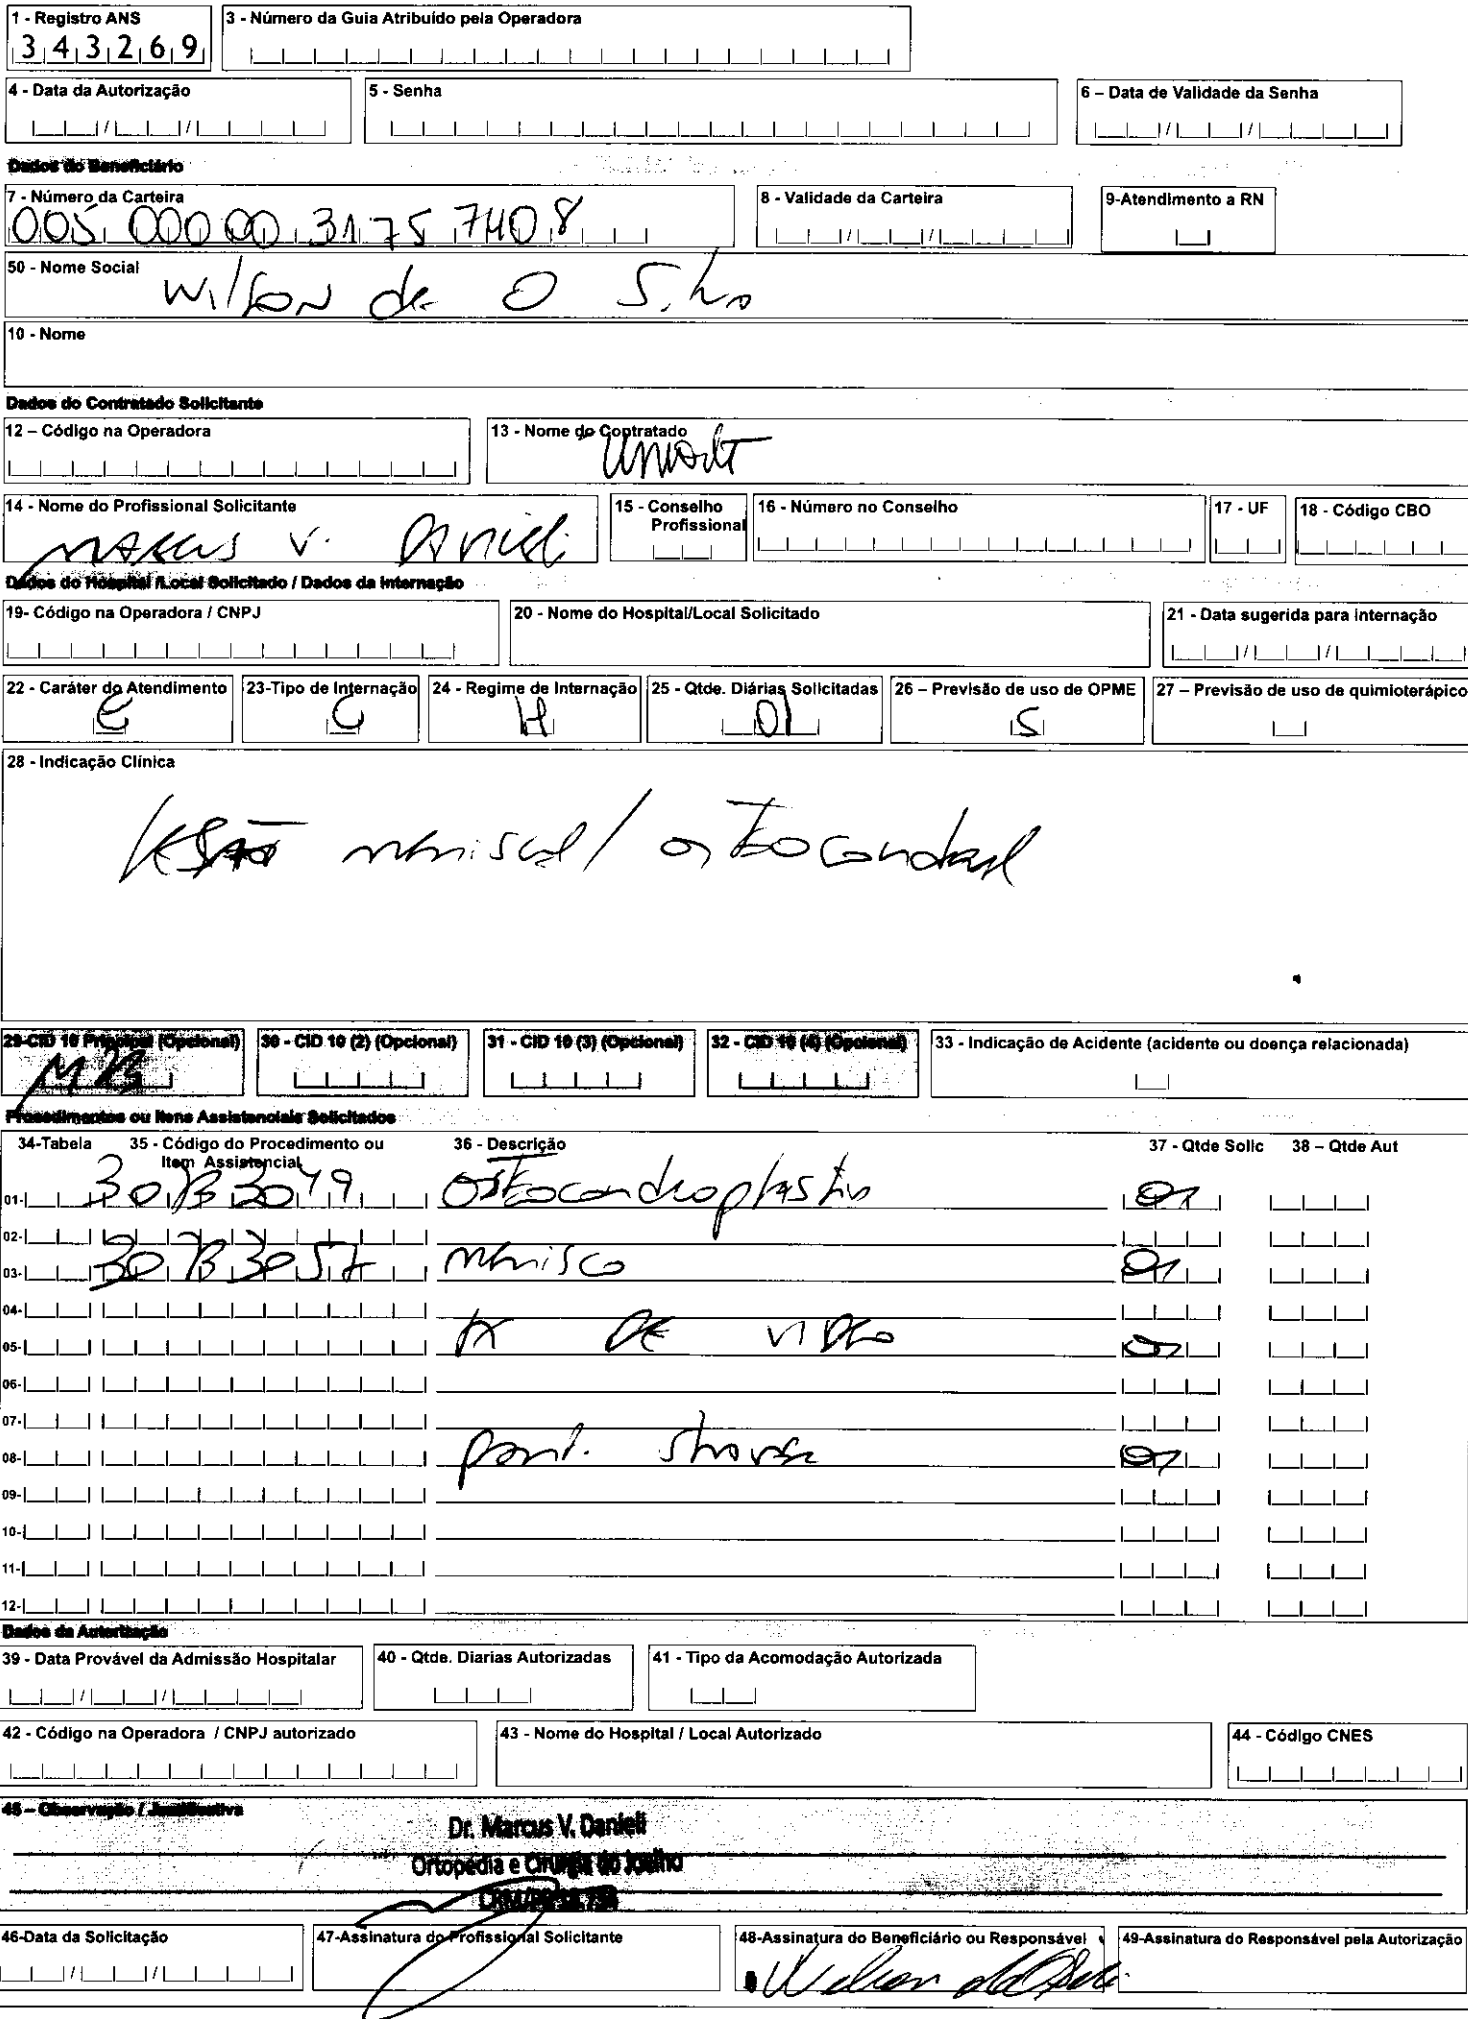 1 - Registro ANS
343269
3 - Número da Guia Atribuído pela Operadora
4 - Data da Autorização
5 - Senha
6 – Data de Validade da Senha
Dados do Beneficiário
7 - Número da Carteira
005 00000 3175 7408
8 - Validade da Carteira
9-Atendimento a RN
50 - Nome Social
Wilson de O Silva
10 - Nome
Dados do Contratado Solicitante
12 – Código na Operadora
13 - Nome do Contratado
14 - Nome do Profissional Solicitante
Marcus V. Danieli
15 - Conselho
Profissional
16 - Número no Conselho
17 - UF
18 - Código CBO
Dados do Hospital /Local Solicitado / Dados da Internação
19- Código na Operadora / CNPJ
20 - Nome do Hospital/Local Solicitado
21 - Data sugerida para internação
22 - Caráter do Atendimento
E
23-Tipo de Internação
C
24 - Regime de Internação
H
25 - Qtde. Diárias Solicitadas
01
26 – Previsão de uso de OPME
S
27 – Previsão de uso de quimioterápico
28 - Indicação Clínica
Lesão meniscal / osteocondral
29-CID 10 Principal (Opcional)
30 - CID 10 (2) (Opcional)
31 - CID 10 (3) (Opcional)
32 - CID 10 (4) (Opcional)
33 - Indicação de Acidente (acidente ou doença relacionada)
Procedimentos ou Itens Assistenciais Solicitados
34-Tabela
35 - Código do Procedimento ou
Item Assistencial
36 - Descrição
37 - Qtde Solic
38 – Qtde Aut
01- 30733049 Osteocondroplastia 01
02-
03- 30733057 menisco 01
04-
05- tx de video 01
06-
07-
08- 01
09-
10-
11-
12-
Dados da Autorização
39 - Data Provável da Admissão Hospitalar
40 - Qtde. Diarias Autorizadas
41 - Tipo da Acomodação Autorizada
42 - Código na Operadora / CNPJ autorizado
43 - Nome do Hospital / Local Autorizado
44 - Código CNES
45 – Observação / Justificativa
Dr. Marcus V. Danieli
Ortopedia e Cirurgia do Joelho
46-Data da Solicitação
47-Assinatura do Profissional Solicitante
48-Assinatura do Beneficiário ou Responsável
49-Assinatura do Responsável pela Autorização